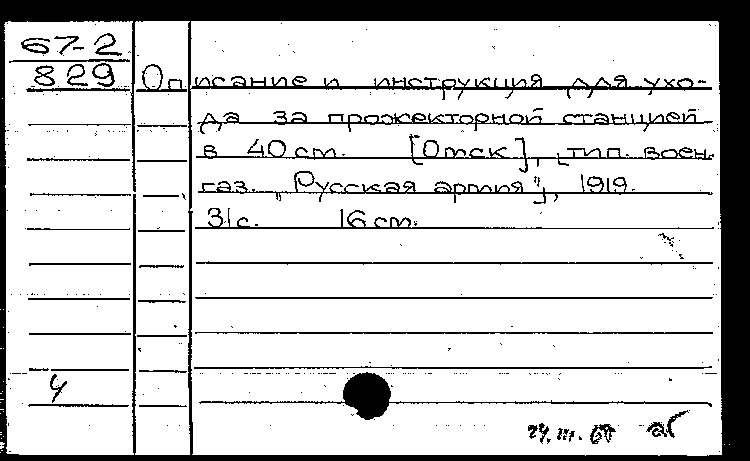 67-2
829 Описание и инструкция для ухо-
да за прожекторной станцией
в 40 см. [Омск], [тип. воен.
газ. „Русская армия"], 1919.
31 с. 16 см.
24.III.68